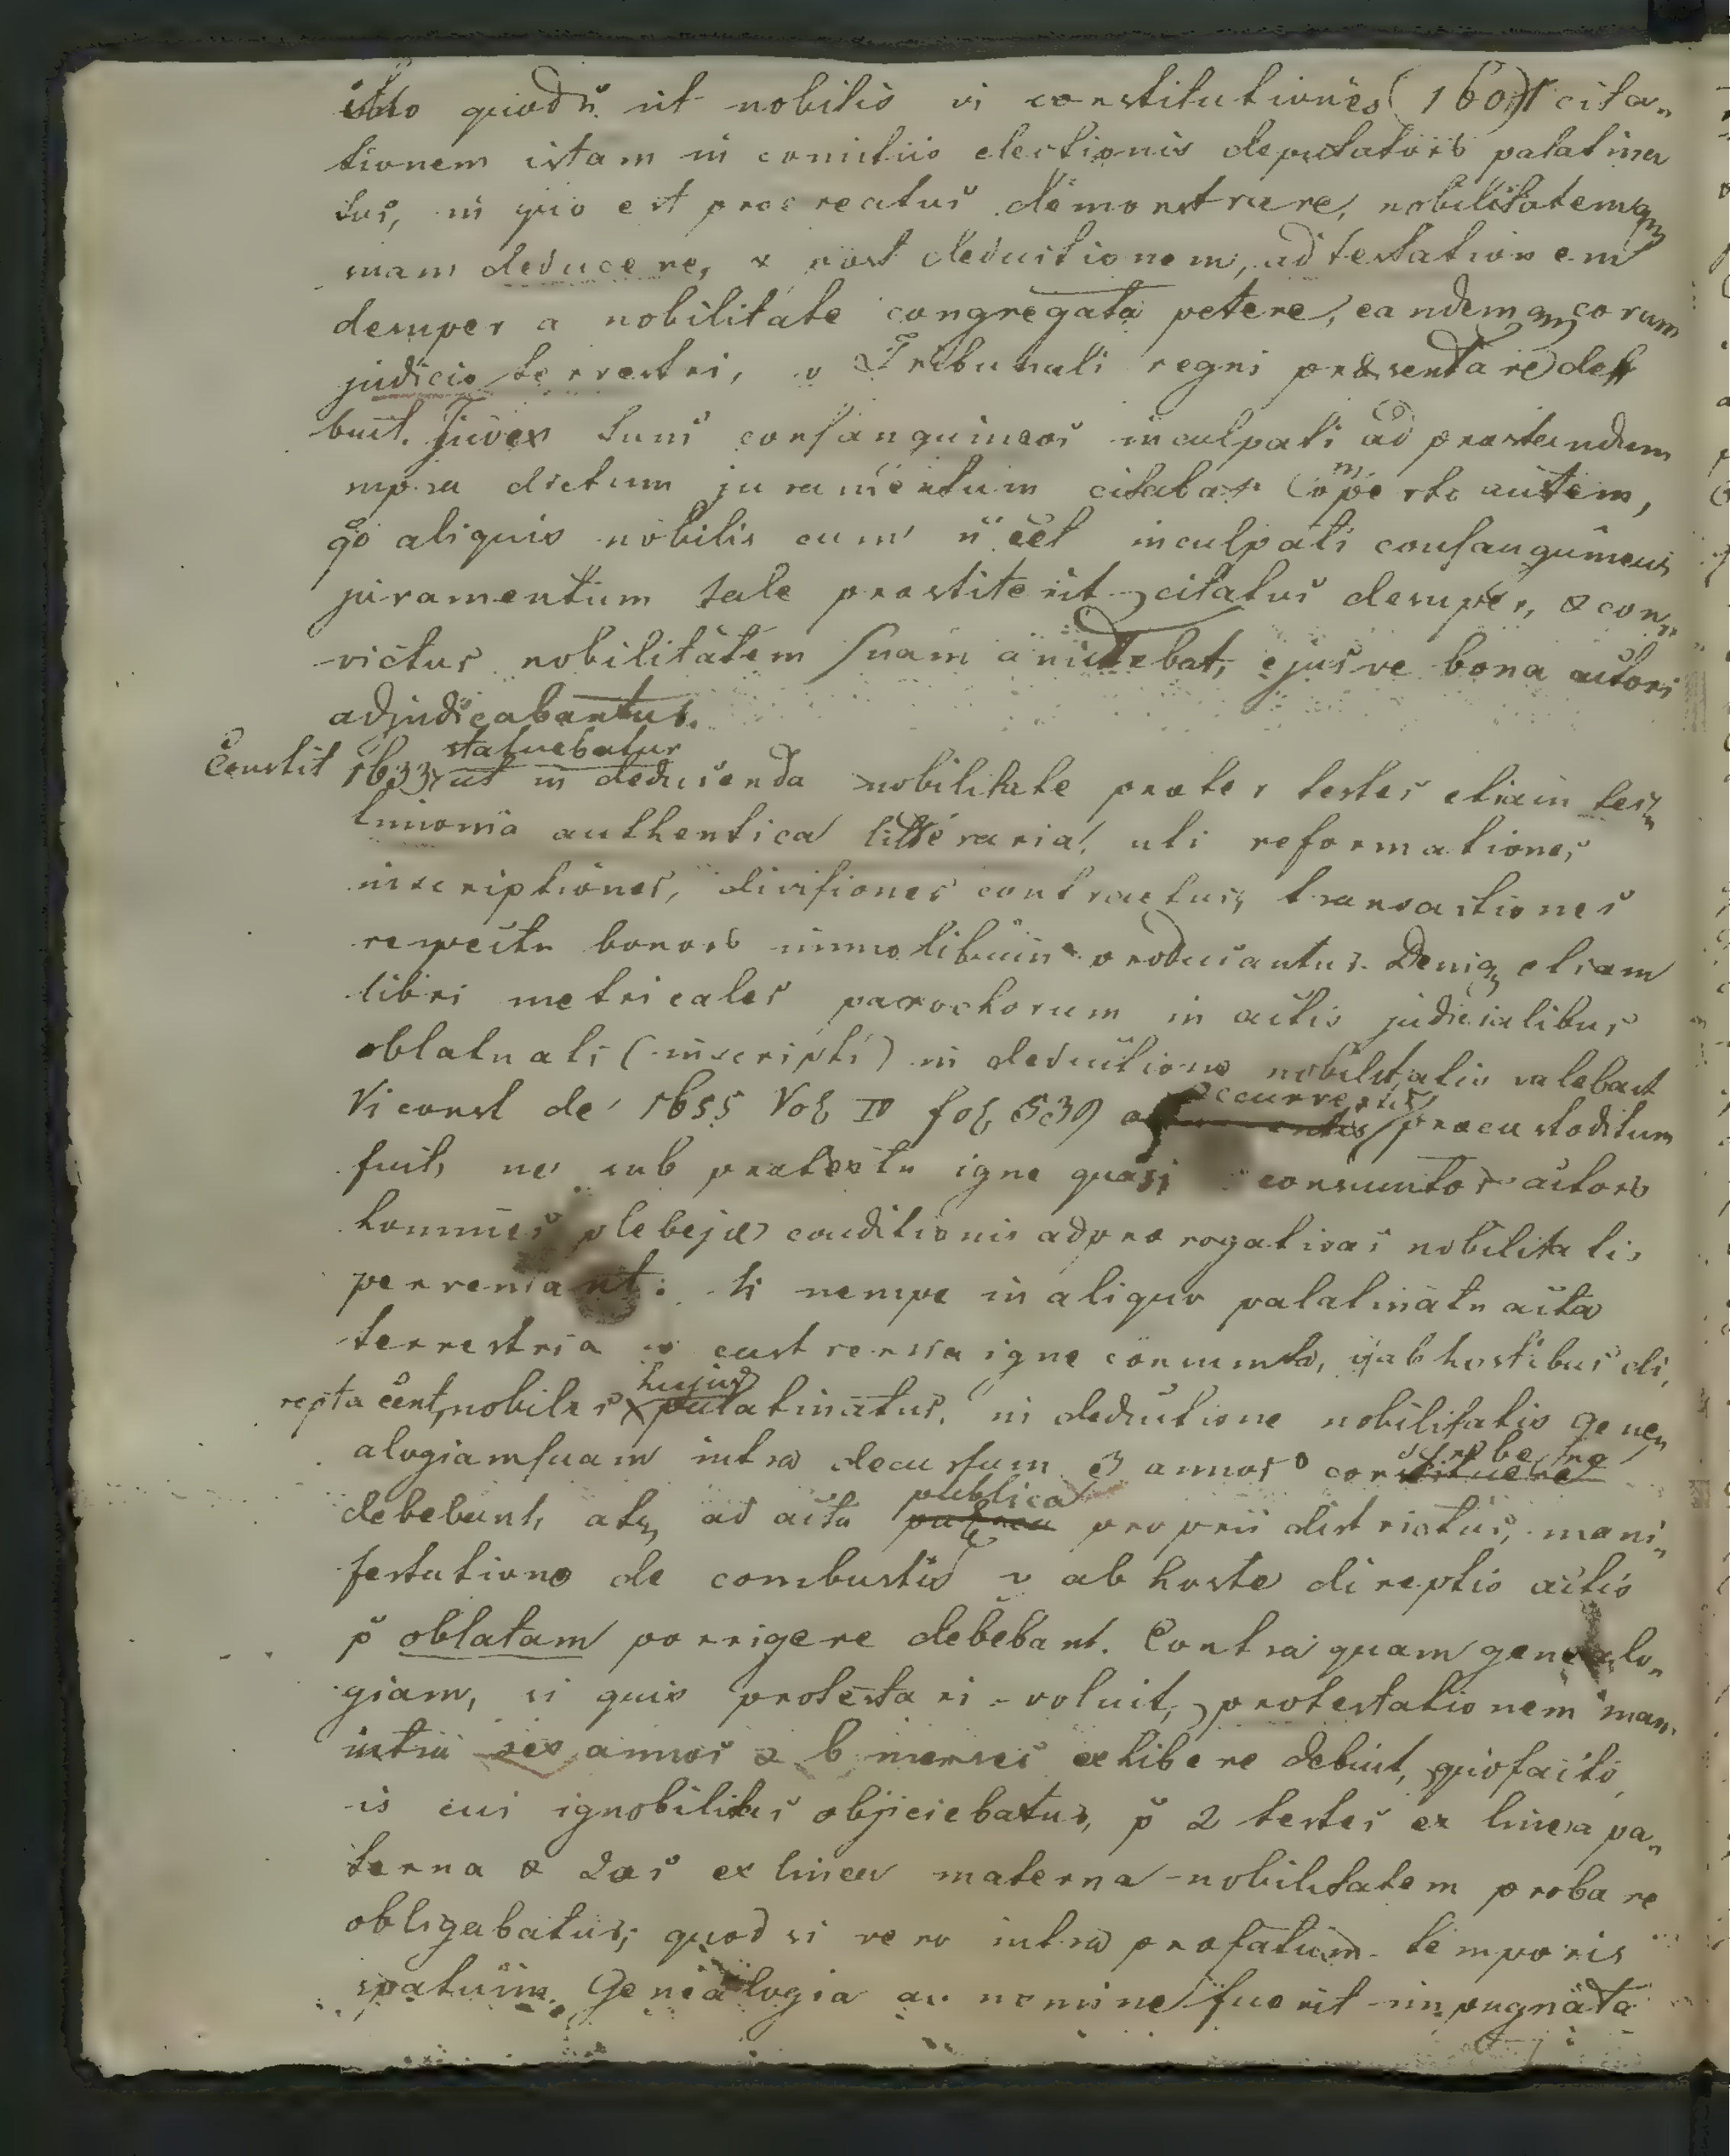 isto quod ut nobilis vi constitutiones (1601 cita„
tionem istam in comitiis electionis deputatoris palatina
tus, in quo est procreatus demonstrare, nobilitatemq
suam deducere, & post deductionem, adtestationem
desuper a nobilitate congregata petere, eandemq coram
judicio terrestri, v Tribunali regni præsentare de
buit. Judex tum consanguineos inculpati ad præstandum
supra dictum juramentum citabat Comperto autem,
qo aliquis nobilis cum n eet inculpati consanguineus
juramentum tale præstiterit citatus desuper, & con„
victus nobilitatem suam amittebat, ejusve bona actori
adjudicabantur.
Constit 1633 statuebatur
ut in deducenda nobilitate præter testes etiam tes„
timonia authentica litteraria, uti reformationes
inscriptiones, divisiones contractus, transactiones
respectu bonors immobilium producantur. Deniq etiam
libri metricales parochorum in actis judicialibus
oblatuati (inscripti) in deductione nobilitatis valebant
Vi const de 1655 Vol IV fol 539 occurrentis præcustoditum
fuit, ne sub prætextu igne quasi consumtor actors
homines plebejæ conditionis ad prærogativas nobilitatis
perveniant: Si nempe in aliquo palatinatu acta
terrestria v castrensia igne consumta, v ab hostibus di„
repta eent, nobiles hujus palatinatus, in deductione nobilitatis gene„
alogiam suam intra decursum 3 annor conscribere
debebant, atq ad acta publica proprii districtus, mani„
festatione de combustis v ab hoste direptis actis
p oblatam porrigere debebant. Contra quam genealo„
giam, si quis protestari voluit, protestationem suam
intra sex annos & 6 menses exhibere debuit, quo facto
is cui ignobilitas objiciebatur, p 2 testes ex linea pa„
terna & 2os ex linea materna nobilitatem probare
obligabatur; quod si vero intra præfatum temporis
spatium Genealogia a nemine fuerit impugnata